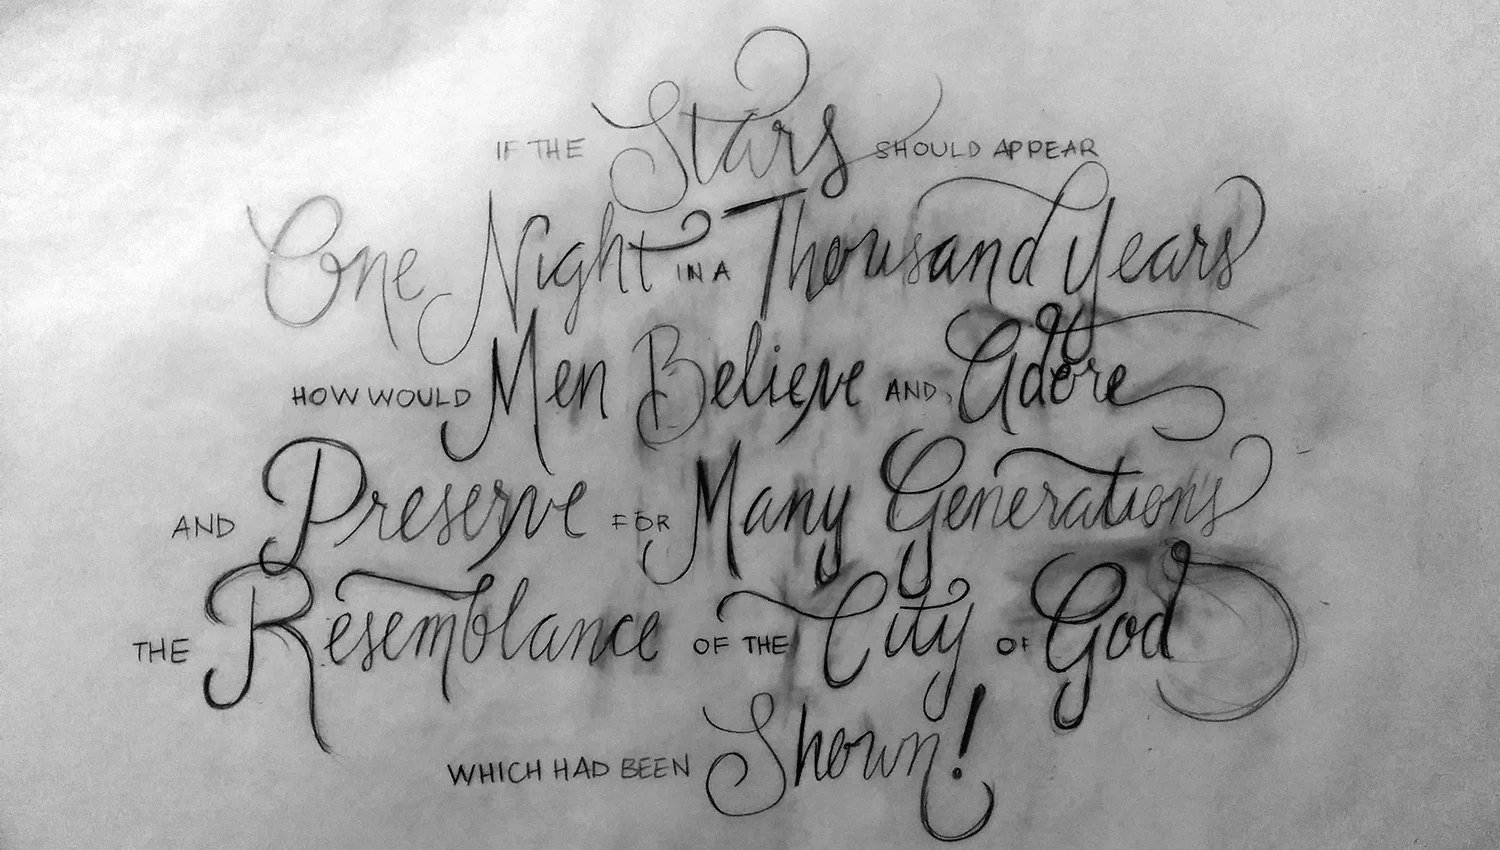 IF THE Stars SHOULD APPEAR
One Night IN A Thousand Years
HOW WOULD Men Believe AND Adore
AND Preserve FOR Many Generations
THE Resemblance OF THE City OF God
WHICH HAD BEEN Shown!